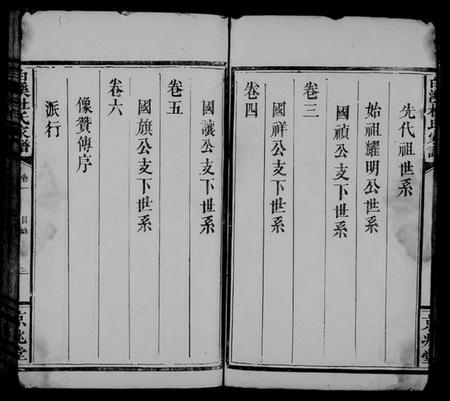 先代祖世系
始祖耀明公世系
卷三
國禎公支下世系
國祥公支下世系
卷四
國讓公支下世系
卷五
國旗公支下世系
卷六
像贊傳序
派行
杜氏家譜
卷一
目錄
京兆堂